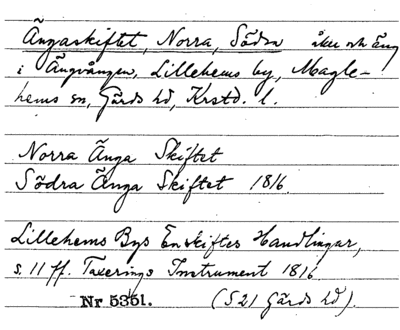 Ängaskiftet, Norra, Södra åker och äng
i Ängvången, Lillehems by, Magle-
hems sn, Gärds hd, Krstd. l.
Norra Änga Skiftet
Södra Änga Skiftet 1816.
Lillehems Bys Enskiftes Handlingar,
s. 11 ff. Taxerings Instrument 1816.
Nr. 5351. (S21 Gärds hd).